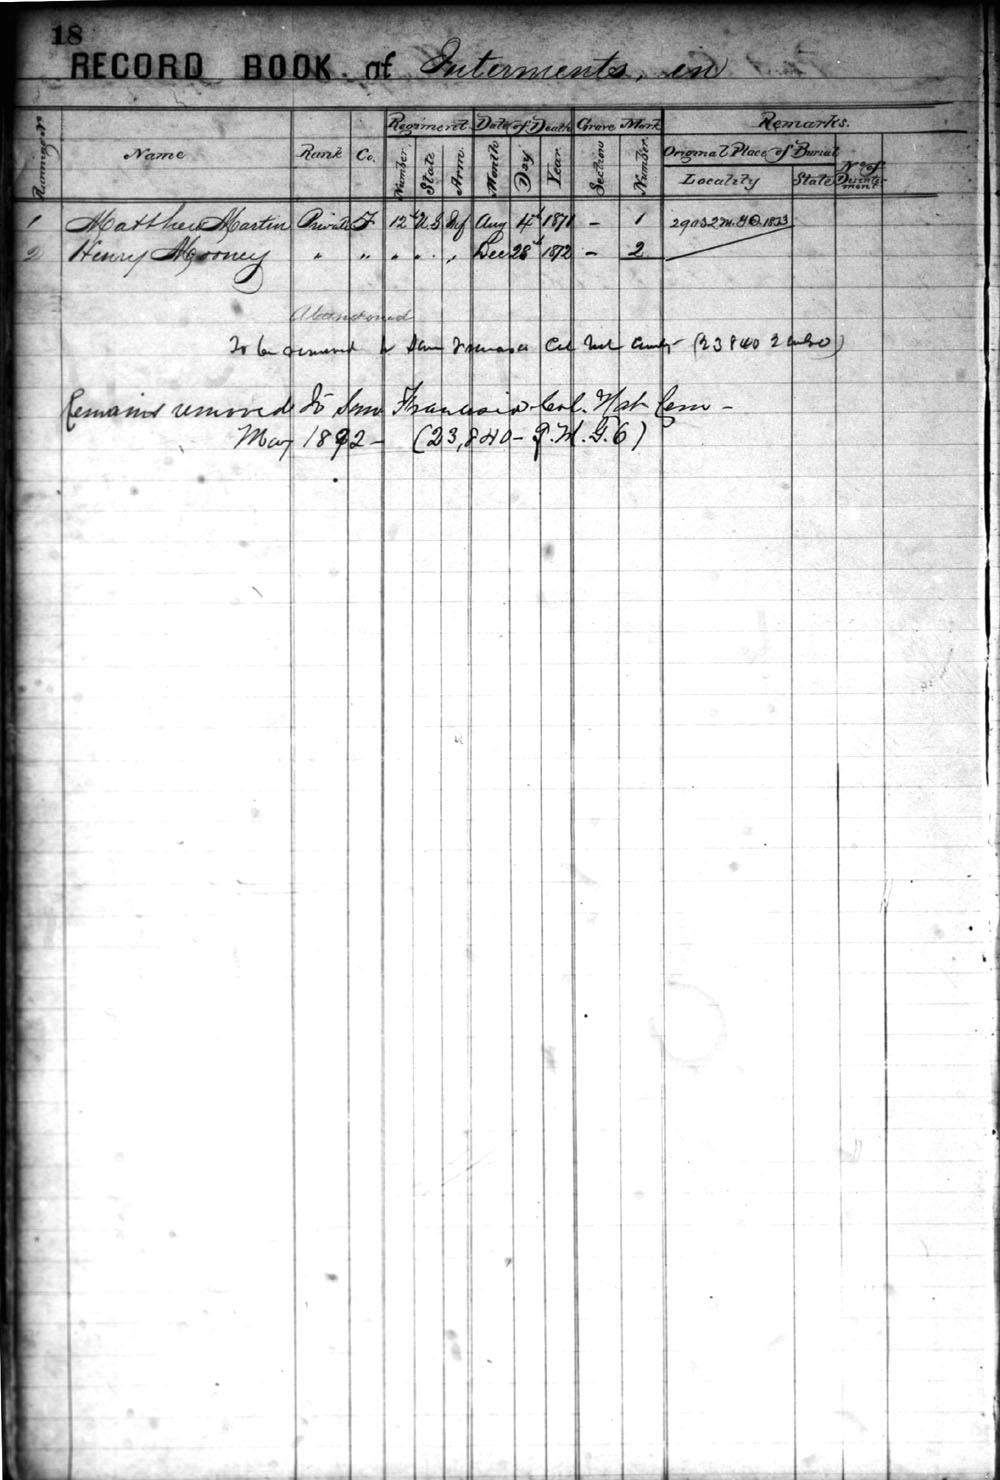 18
RECORD BOOK of Interments, in
Running No. Name Rank Co. Regiment Date of Death Grave Mark Remarks.
Number. State Arm. Month Day Year. Section Number. Original Place of Burial No. of Disinterment
Locality State
1 Matthew Martin Private F 12th U.S Inf Aug 4th 1871 – 1 1873
2 Henry Mooney " " " " " Dec 28th 1872 – 2
Abandoned
To be removed to San Francisco Cal Nat Cemty (23840
Remains removed to San Francisco Cal. Nat Cem –
May 1892 – (23,840 – Q.M.G.O)